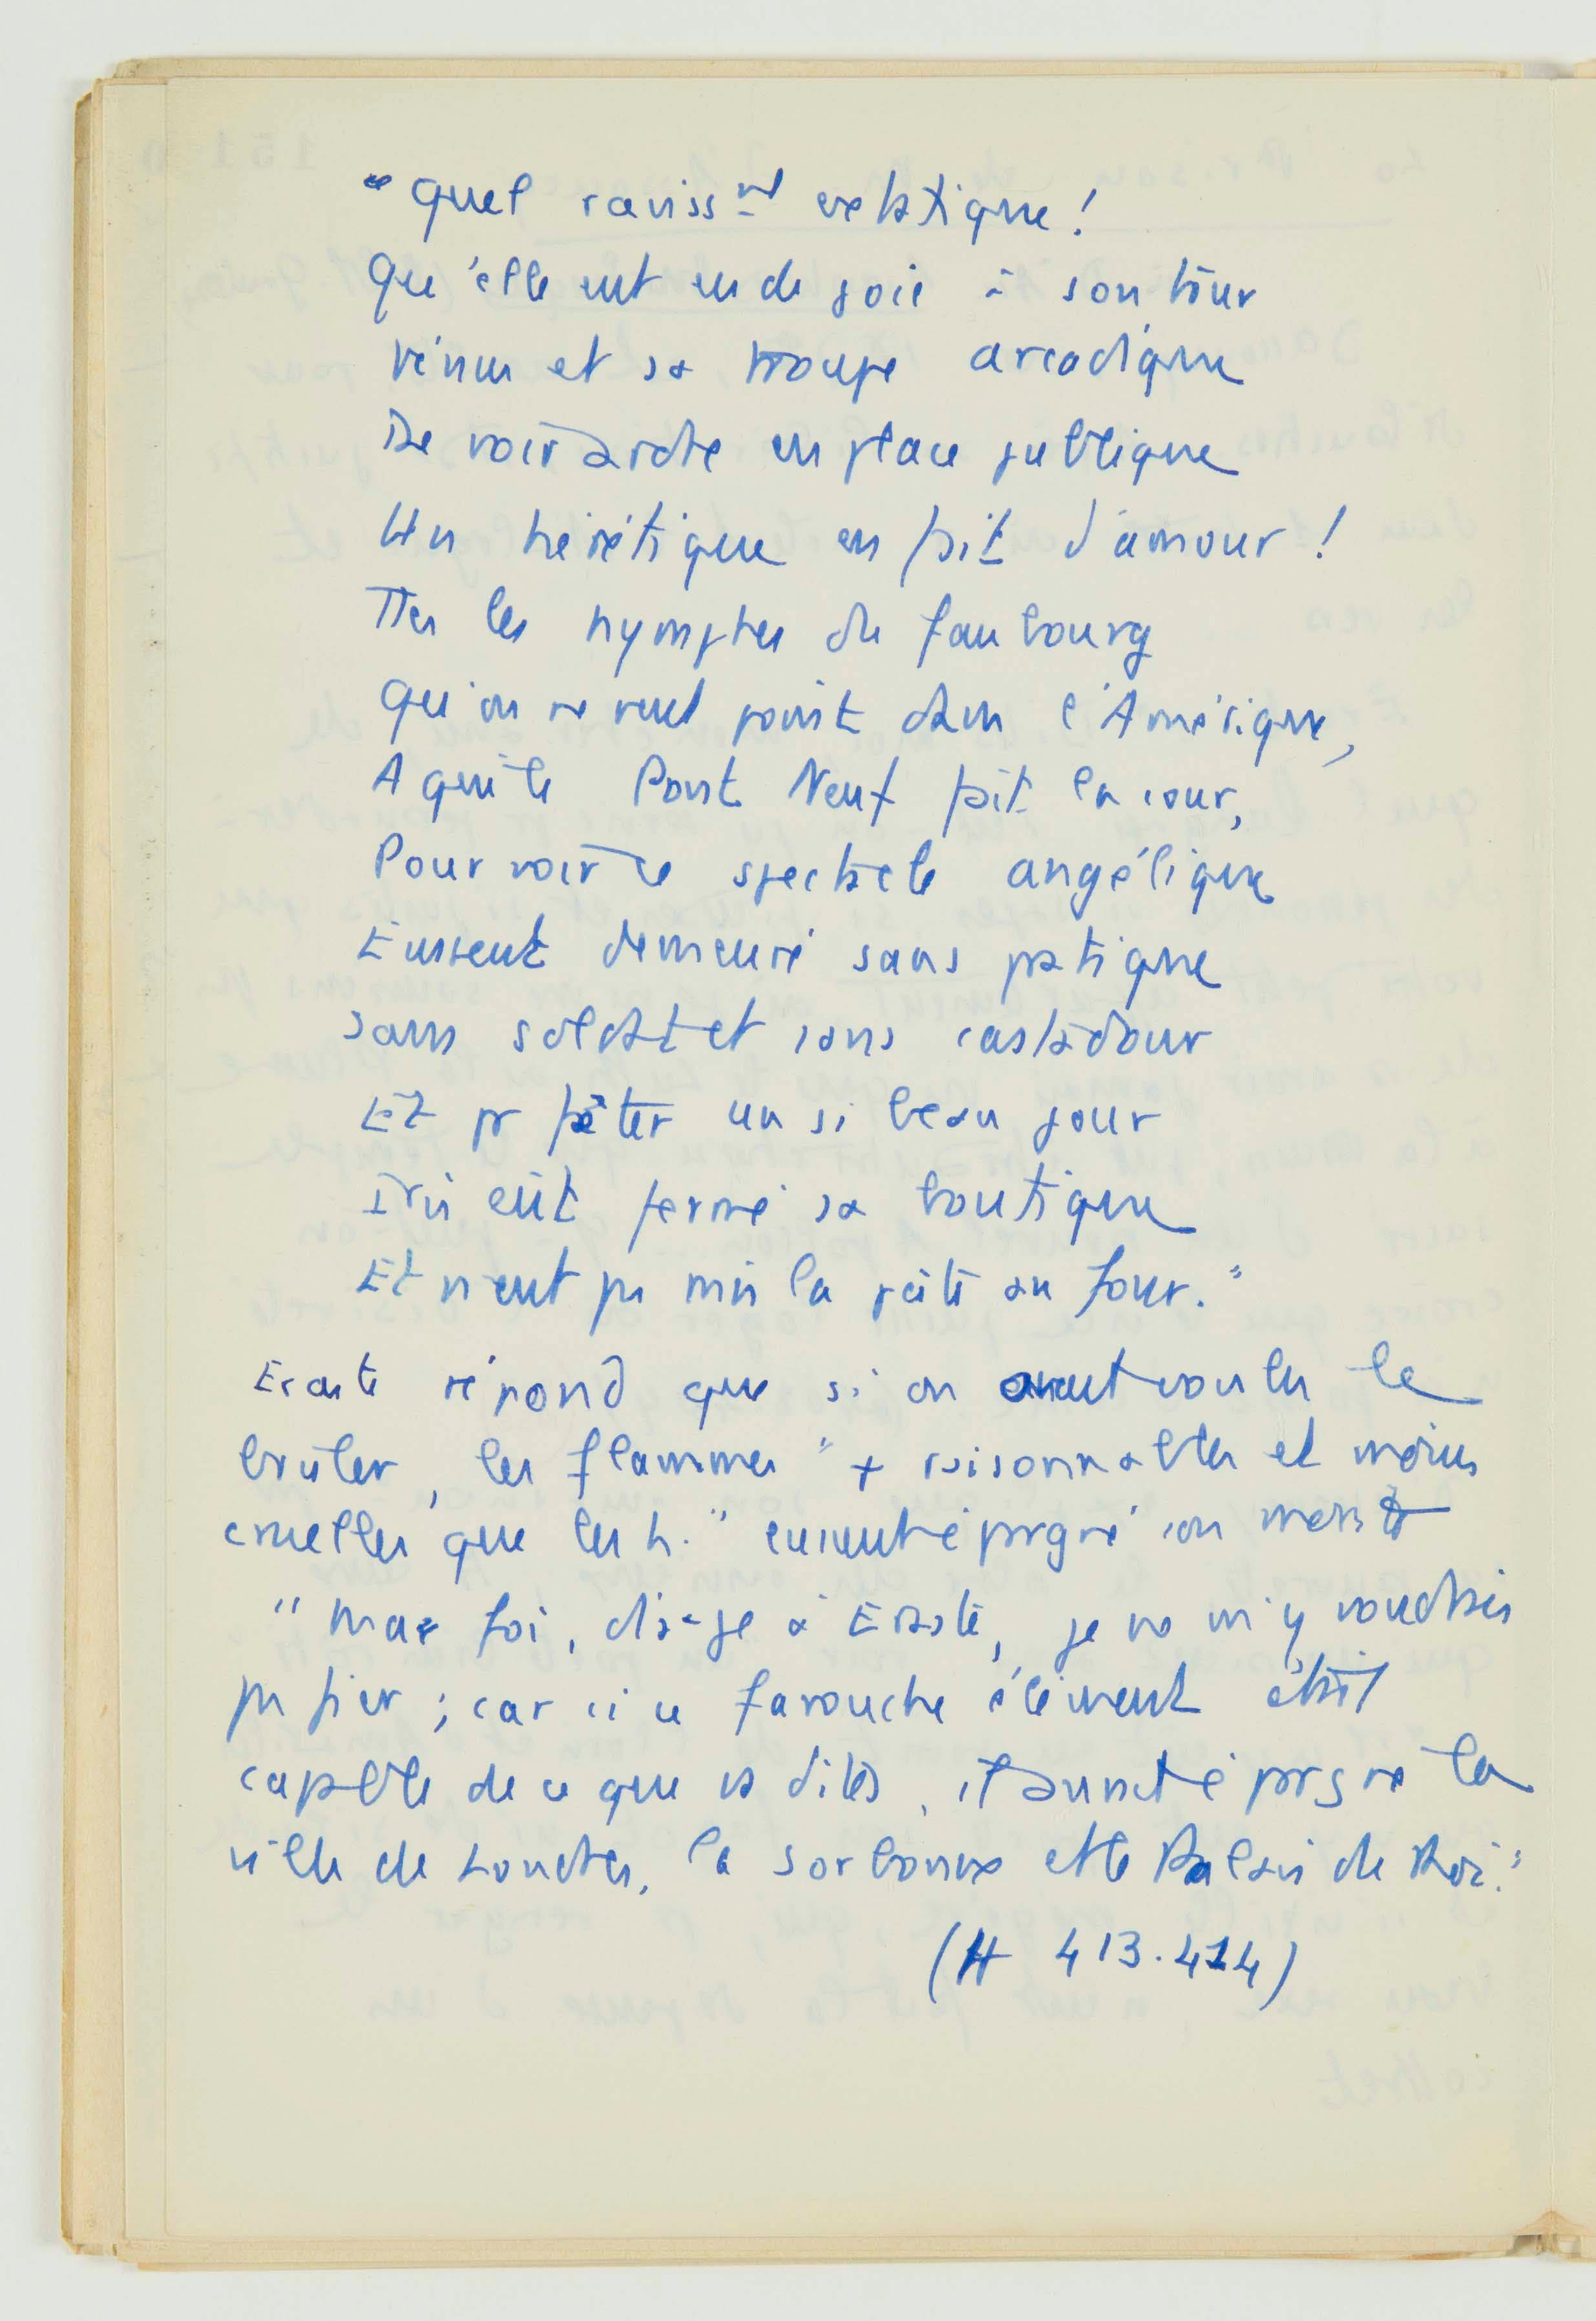 "Quel raviss^nt extatique !
Qu'elle eut eu de joie à son tour
Vénus et sa troupe arcadique
De voir ardre en place publique
Un hérétique en fait d'amour !
Ttes les nymphes du faubourg
Qu'on ne veut point dans l'Amérique,
A qui le Pont Neuf fait la cour,
Pour voir ce spectacle angélique
Eussent demeuré sans pratique
Sans soldat et sans castadour
Et pr fêter un si beau jour
Iris eût fermé sa boutique
Et n'eut pas mis la pâte au four."
Eraste répond que si on avait voulu le
brûler, les flammes "+ raisonnables et moins
cruelles que les h." eussent épargné son
"Ma foi, dis-je à Eraste, je ne m'y voudrais
pas fier ; car si ce farouche élément était
capable de ce que vs dites, il aurait épargné la
ville de Londres, la Sorbonne et le Palais du Roi."
(H 413.414)